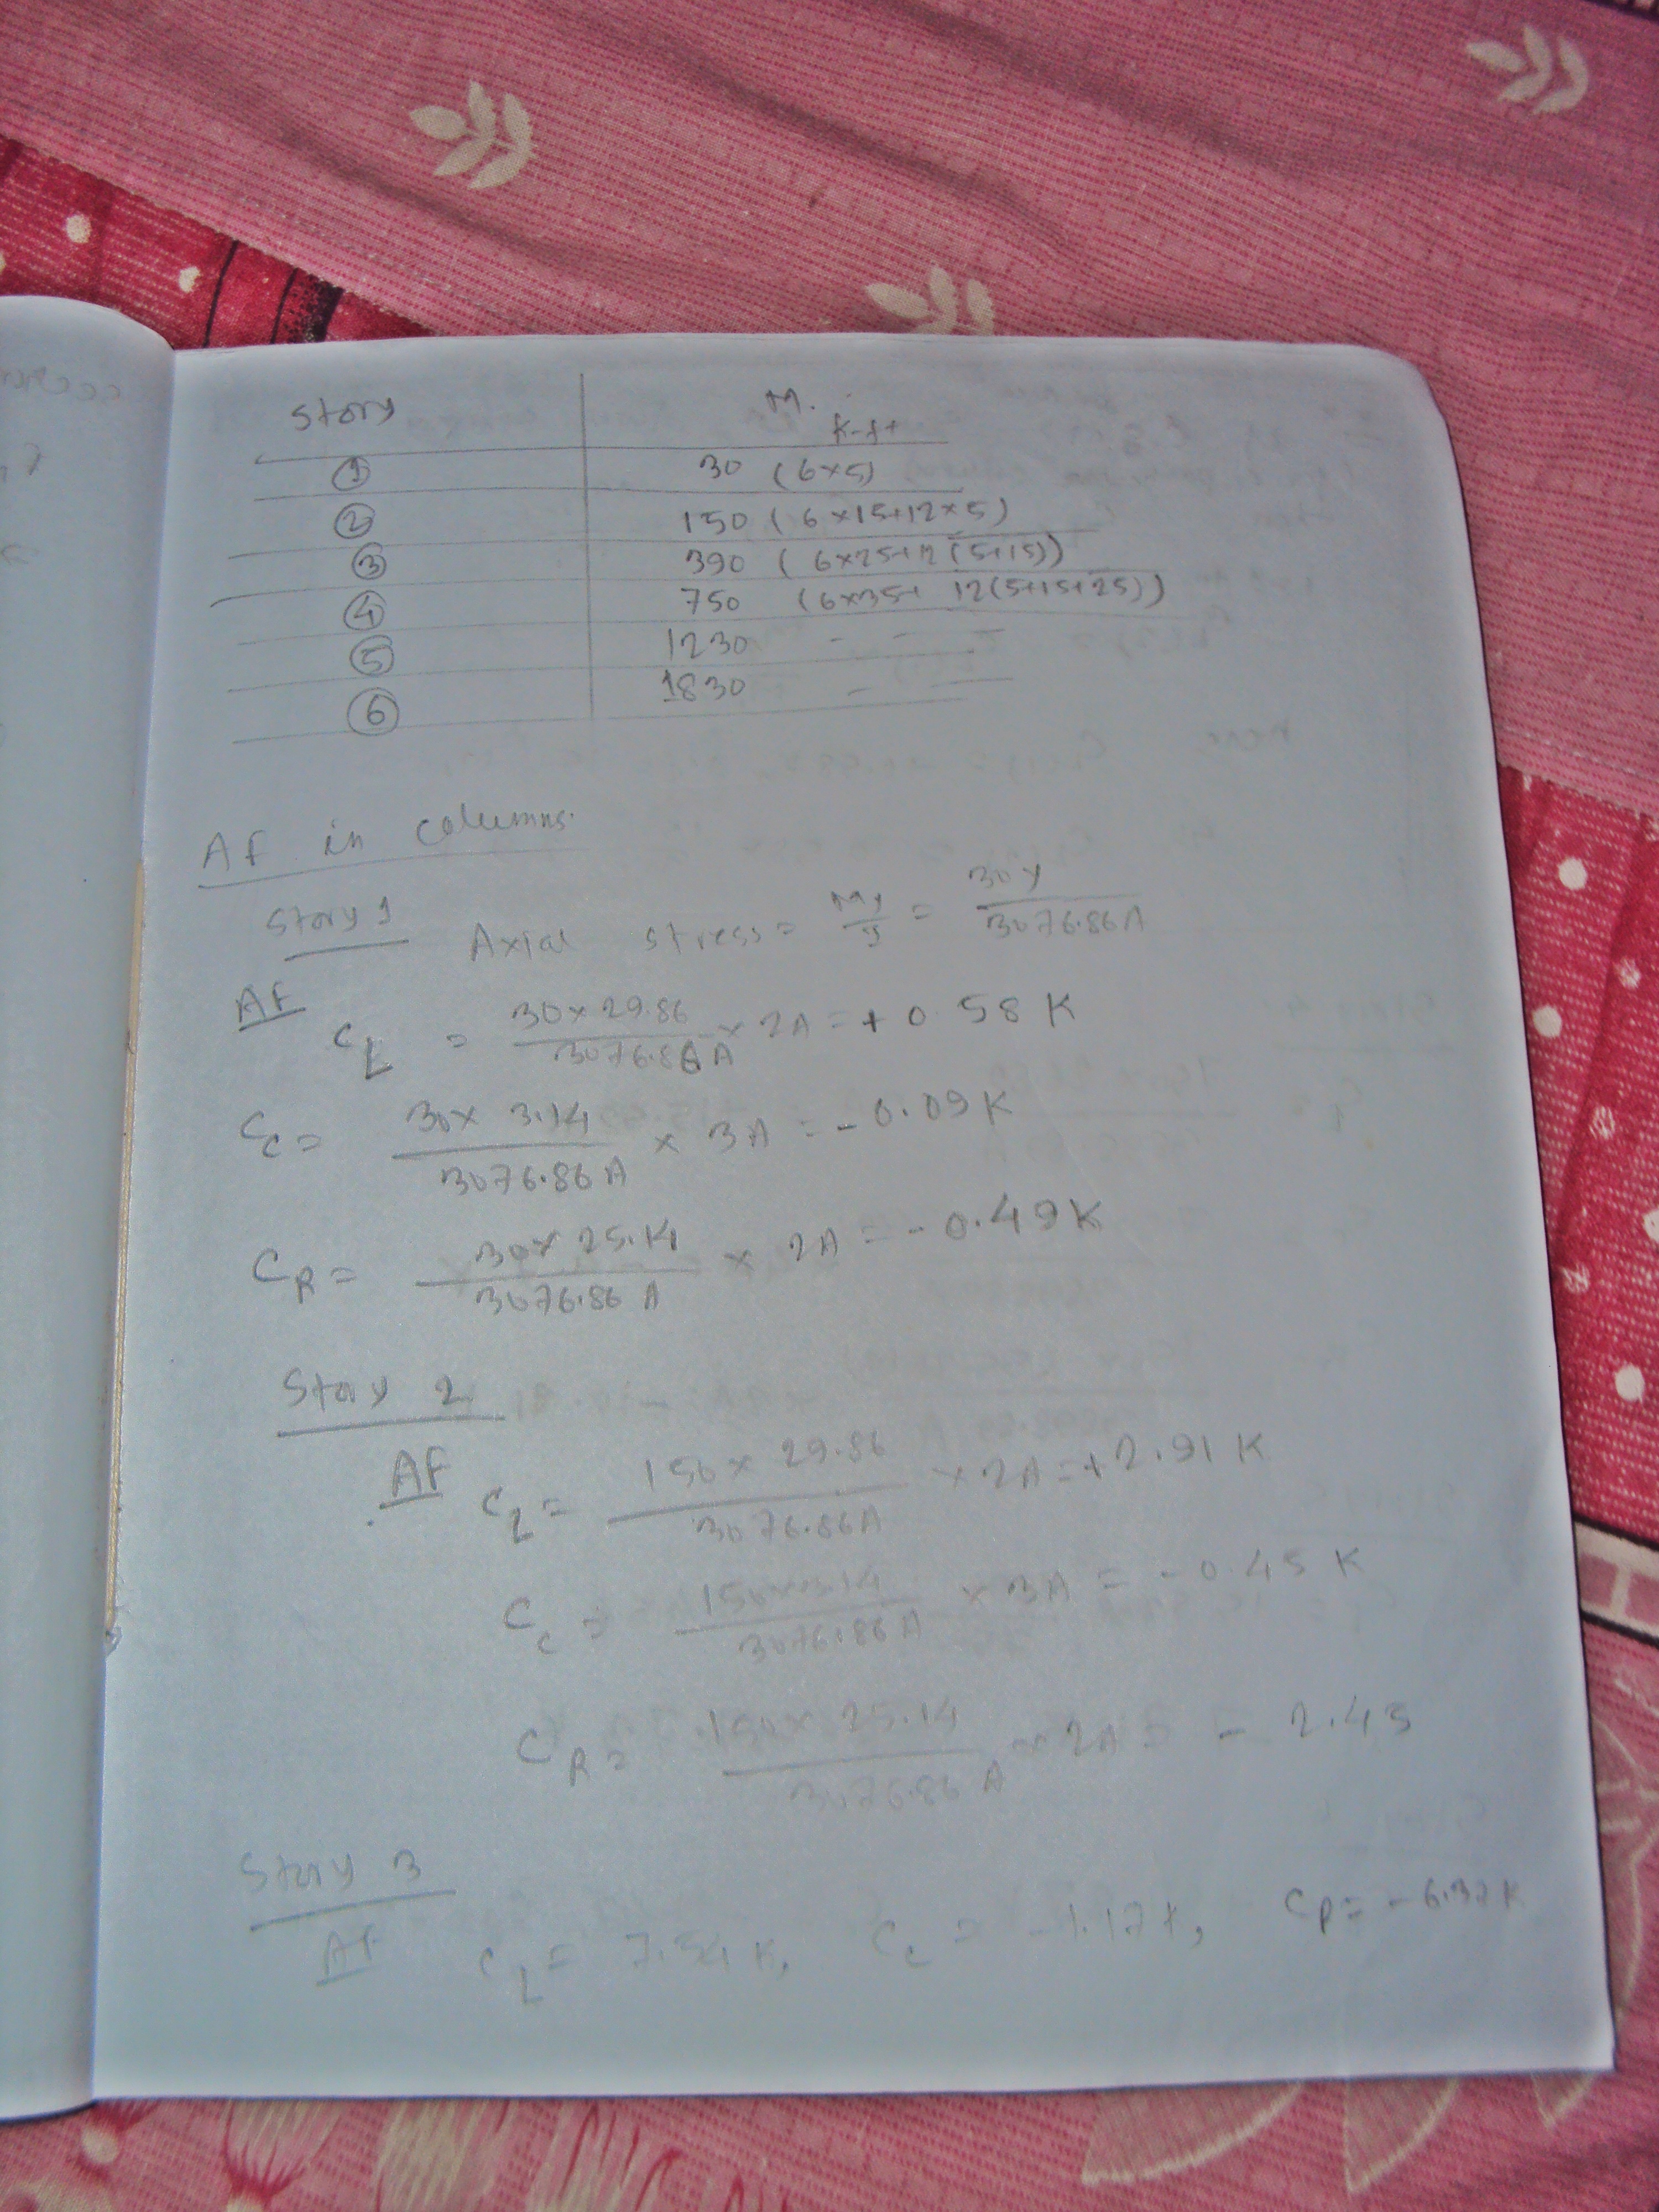 Story M. k-ft
① 30 (6×5)
② 150 (6×15+12×5)
③ 390 (6×25+12(5+15))
④ 750 (6×35+ 12(5+15+25))
⑤ 1230 - -
⑥ 1830 - -
AF in columns.
Story 1 Axial stress = My/I = 30y/3076.86A
AF C_L = 30×29.86/3076.86A × 2A = +0.58 K
C_C = 30×3.14/3076.86A × 3A = -0.09K
C_R = 30×25.14/3076.86A × 2A = -0.49K
Story 2
AF C_L = 150×29.86/3076.86A × 2A = +2.91 K
C_C = 150×3.14/3076.86A × 3A = -0.45 K
C_R = 150×25.14/3076.86A × 2A = -2.45
Story 3
AF C_L = 7.54 K, C_C = -1.17K, C_R = -6.37K